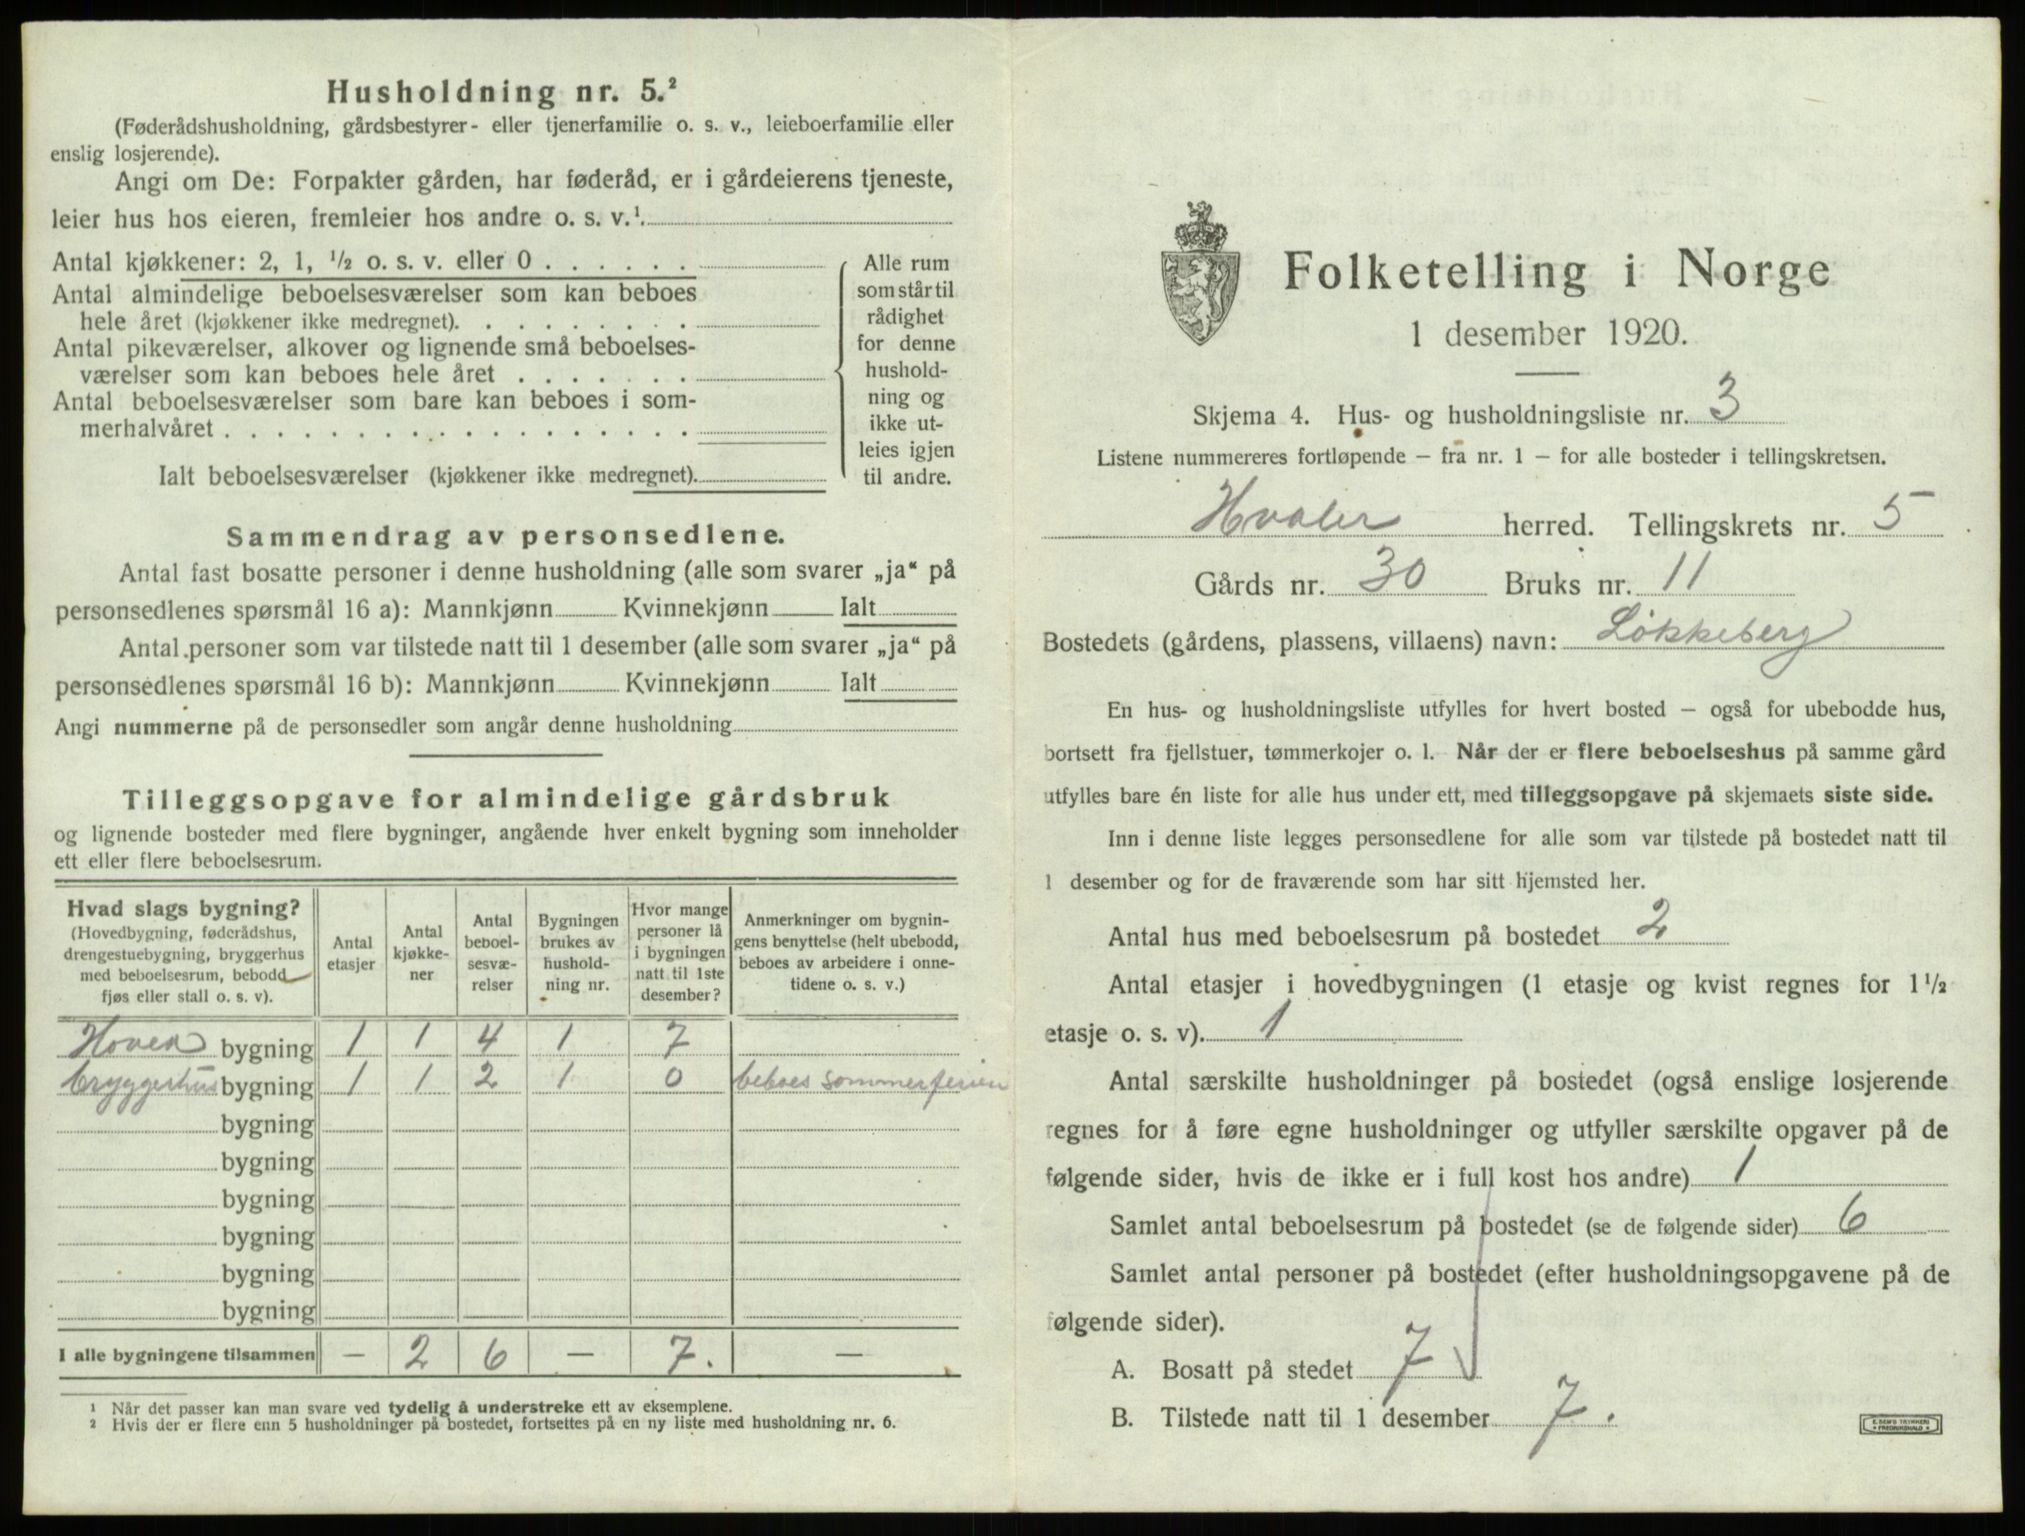 Husholdning nr. 5.²
(Føderådshusholdning, gårdsbestyrer- eller tjenerfamilie o. s. v., leieboerfamilie eller
enslig losjerende).
Angi om De: Forpakter gården, har føderåd, er i gårdeierens tjeneste,
leier hus hos eieren, fremleier hos andre o. s. v.¹.
Antal kjøkkener: 2, 1, ½ o. s. v. eller 0 . . . . . .
Antal almindelige beboelsesværelser som kan beboes
hele året (kjøkkener ikke medregnet). . . . . . . . .
Antal pikeværelser, alkover og lignende små beboelses-
værelser som kan beboes hele året . . . . . . .
Antal beboelsesværelser som bare kan beboes i som-
merhalvåret . . . . . . . . . . . . . . . . . .
Ialt beboelsesværelser (kjøkkener ikke medregnet).
Alle rum
som står til
rådighet
for denne
hushold-
ning og
ikke ut-
leies igjen
til andre.
Sammendrag av personsedlene.
Antal fast bosatte personer i denne husholdning (alle som svarer „ja“ på
personsedlenes spørsmål 16 a): Mannkjønn Kvinnekjønn Ialt
Antal personer som var tilstede natt til 1 desember (alle som svarer „ja“ på
personsedlenes spørsmål 16 b): Mannkjønn Kvinnekjønn Ialt
Angi nummerne på de personsedler som angår denne husholdning
Tilleggsopgave for almindelige gårdsbruk
og lignende bosteder med flere bygninger, angående hver enkelt bygning som inneholder
ett eller flere beboelsesrum.
Hvad slags bygning?
(Hovedbygning, føderådshus,
drengestuebygning, bryggerhus
med beboelsesrum, bebodd
fjøs eller stall o. s. v).
Antal
etasjer
Antal
kjøkke-
ner
Antal
beboel-
sesvæ-
relser
Bygningen
brukes av
hushold-
ning nr.
Hvor mange
personer lå
i bygningen
natt til 1ste
desember?
Anmerkninger om bygnin-
gens benyttelse (helt ubebodd,
beboes av arbeidere i onne-
tidene o. s. v.)
Hoved bygning 1 1 4 1 7
bryggerhus bygning 1 1 2 1 0 beboes sommerferien
bygning
bygning
bygning
bygning
bygning
bygning
I alle bygningene tilsammen — 2 6 — 7. —
¹ Når det passer kan man svare ved tydelig å understreke ett av eksemplene.
² Hvis der er flere enn 5 husholdninger på bostedet, fortsettes på en ny liste med husholdning nr. 6.
Folketelling i Norge
1 desember 1920.
Skjema 4. Hus- og husholdningsliste nr. 3
Listene nummereres fortløpende — fra nr. 1 — for alle bosteder i tellingskretsen.
Hvaler herred. Tellingskrets nr. 5
Gårds nr. 30 Bruks nr. 11
Bostedets (gårdens, plassens, villaens) navn: Løkkeberg
En hus- og husholdningsliste utfylles for hvert bosted — også for ubebodde hus,
bortsett fra fjellstuer, tømmerkojer o. l. Når der er flere beboelseshus på samme gård
utfylles bare én liste for alle hus under ett, med tilleggsopgave på skjemaets siste side.
Inn i denne liste legges personsedlene for alle som var tilstede på bostedet natt til
1 desember og for de fraværende som har sitt hjemsted her.
Antal hus med beboelsesrum på bostedet 2
Antal etasjer i hovedbygningen (1 etasje og kvist regnes for 1½
etasje o. s. v). 1
Antal særskilte husholdninger på bostedet (også enslige losjerende
regnes for å føre egne husholdninger og utfyller særskilte opgaver på de
følgende sider, hvis de ikke er i full kost hos andre) 1
Samlet antal beboelsesrum på bostedet (se de følgende sider) 6
Samlet antal personer på bostedet (efter husholdningsopgavene på de
følgende sider).
A. Bosatt på stedet 7
B. Tilstede natt til 1 desember 7.